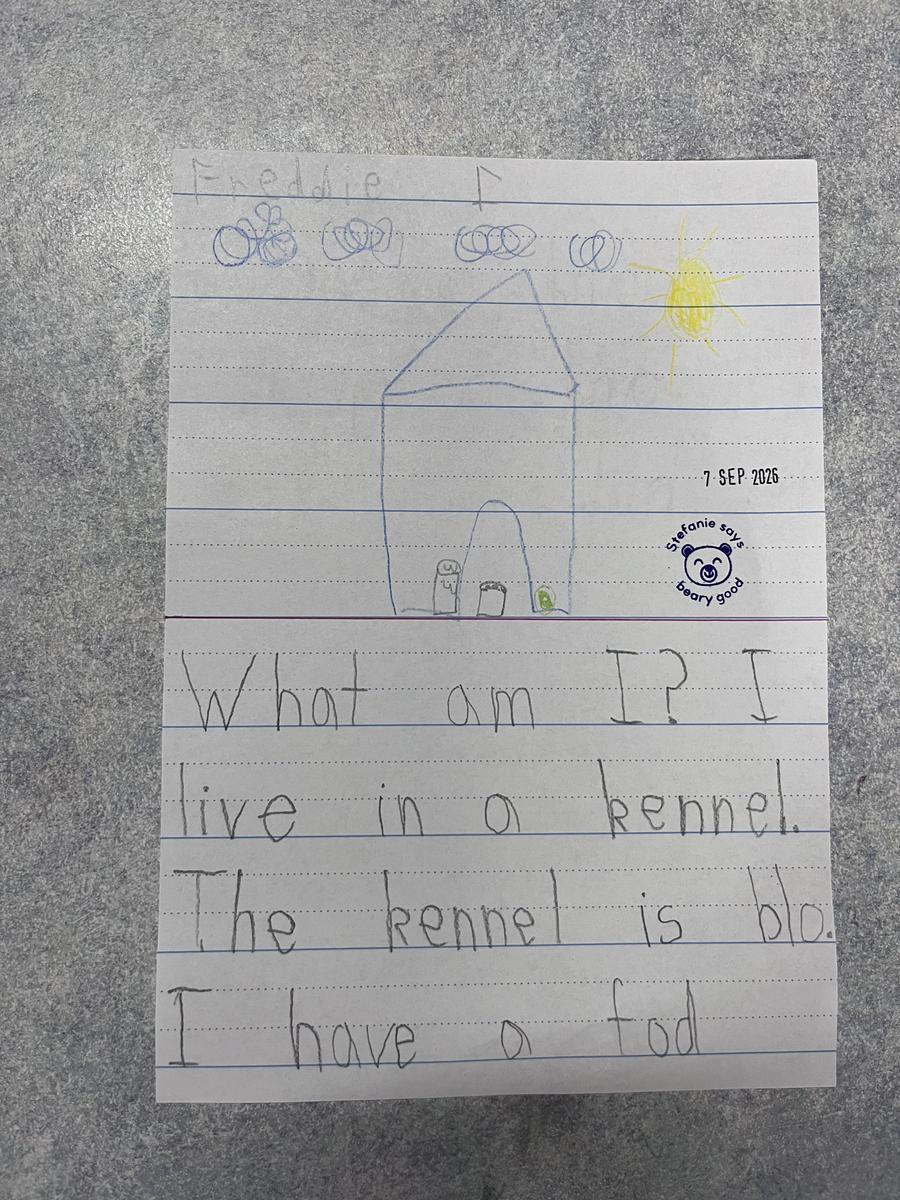 Freddie I
7 SEP 2026
Stefanie says
beary good
What am I? I
live in a kennel.
The kennel is blo.
I have a fod